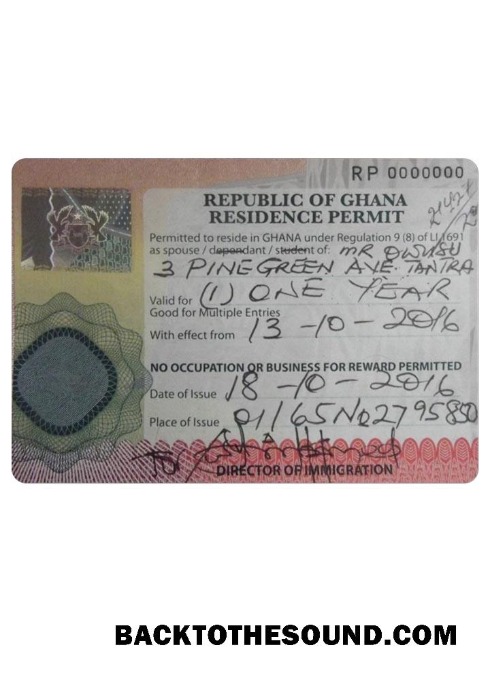 RP 0000000
REPUBLIC OF GHANA
RESIDENCE PERMIT
Permitted to reside in GHANA under Regulation 9 (8) of LI 1691
as spouse / dependant / student of: MR OWUSU
3 PINEGREEN AVE. TANTRA
Valid for (1) ONE YEAR
Good for Multiple Entries
With effect from 13-10-2016
NO OCCUPATION OR BUSINESS FOR REWARD PERMITTED
Date of Issue 18-10-2016
Place of Issue
DIRECTOR OF IMMIGRATION
BACKTOTHESOUND.COM